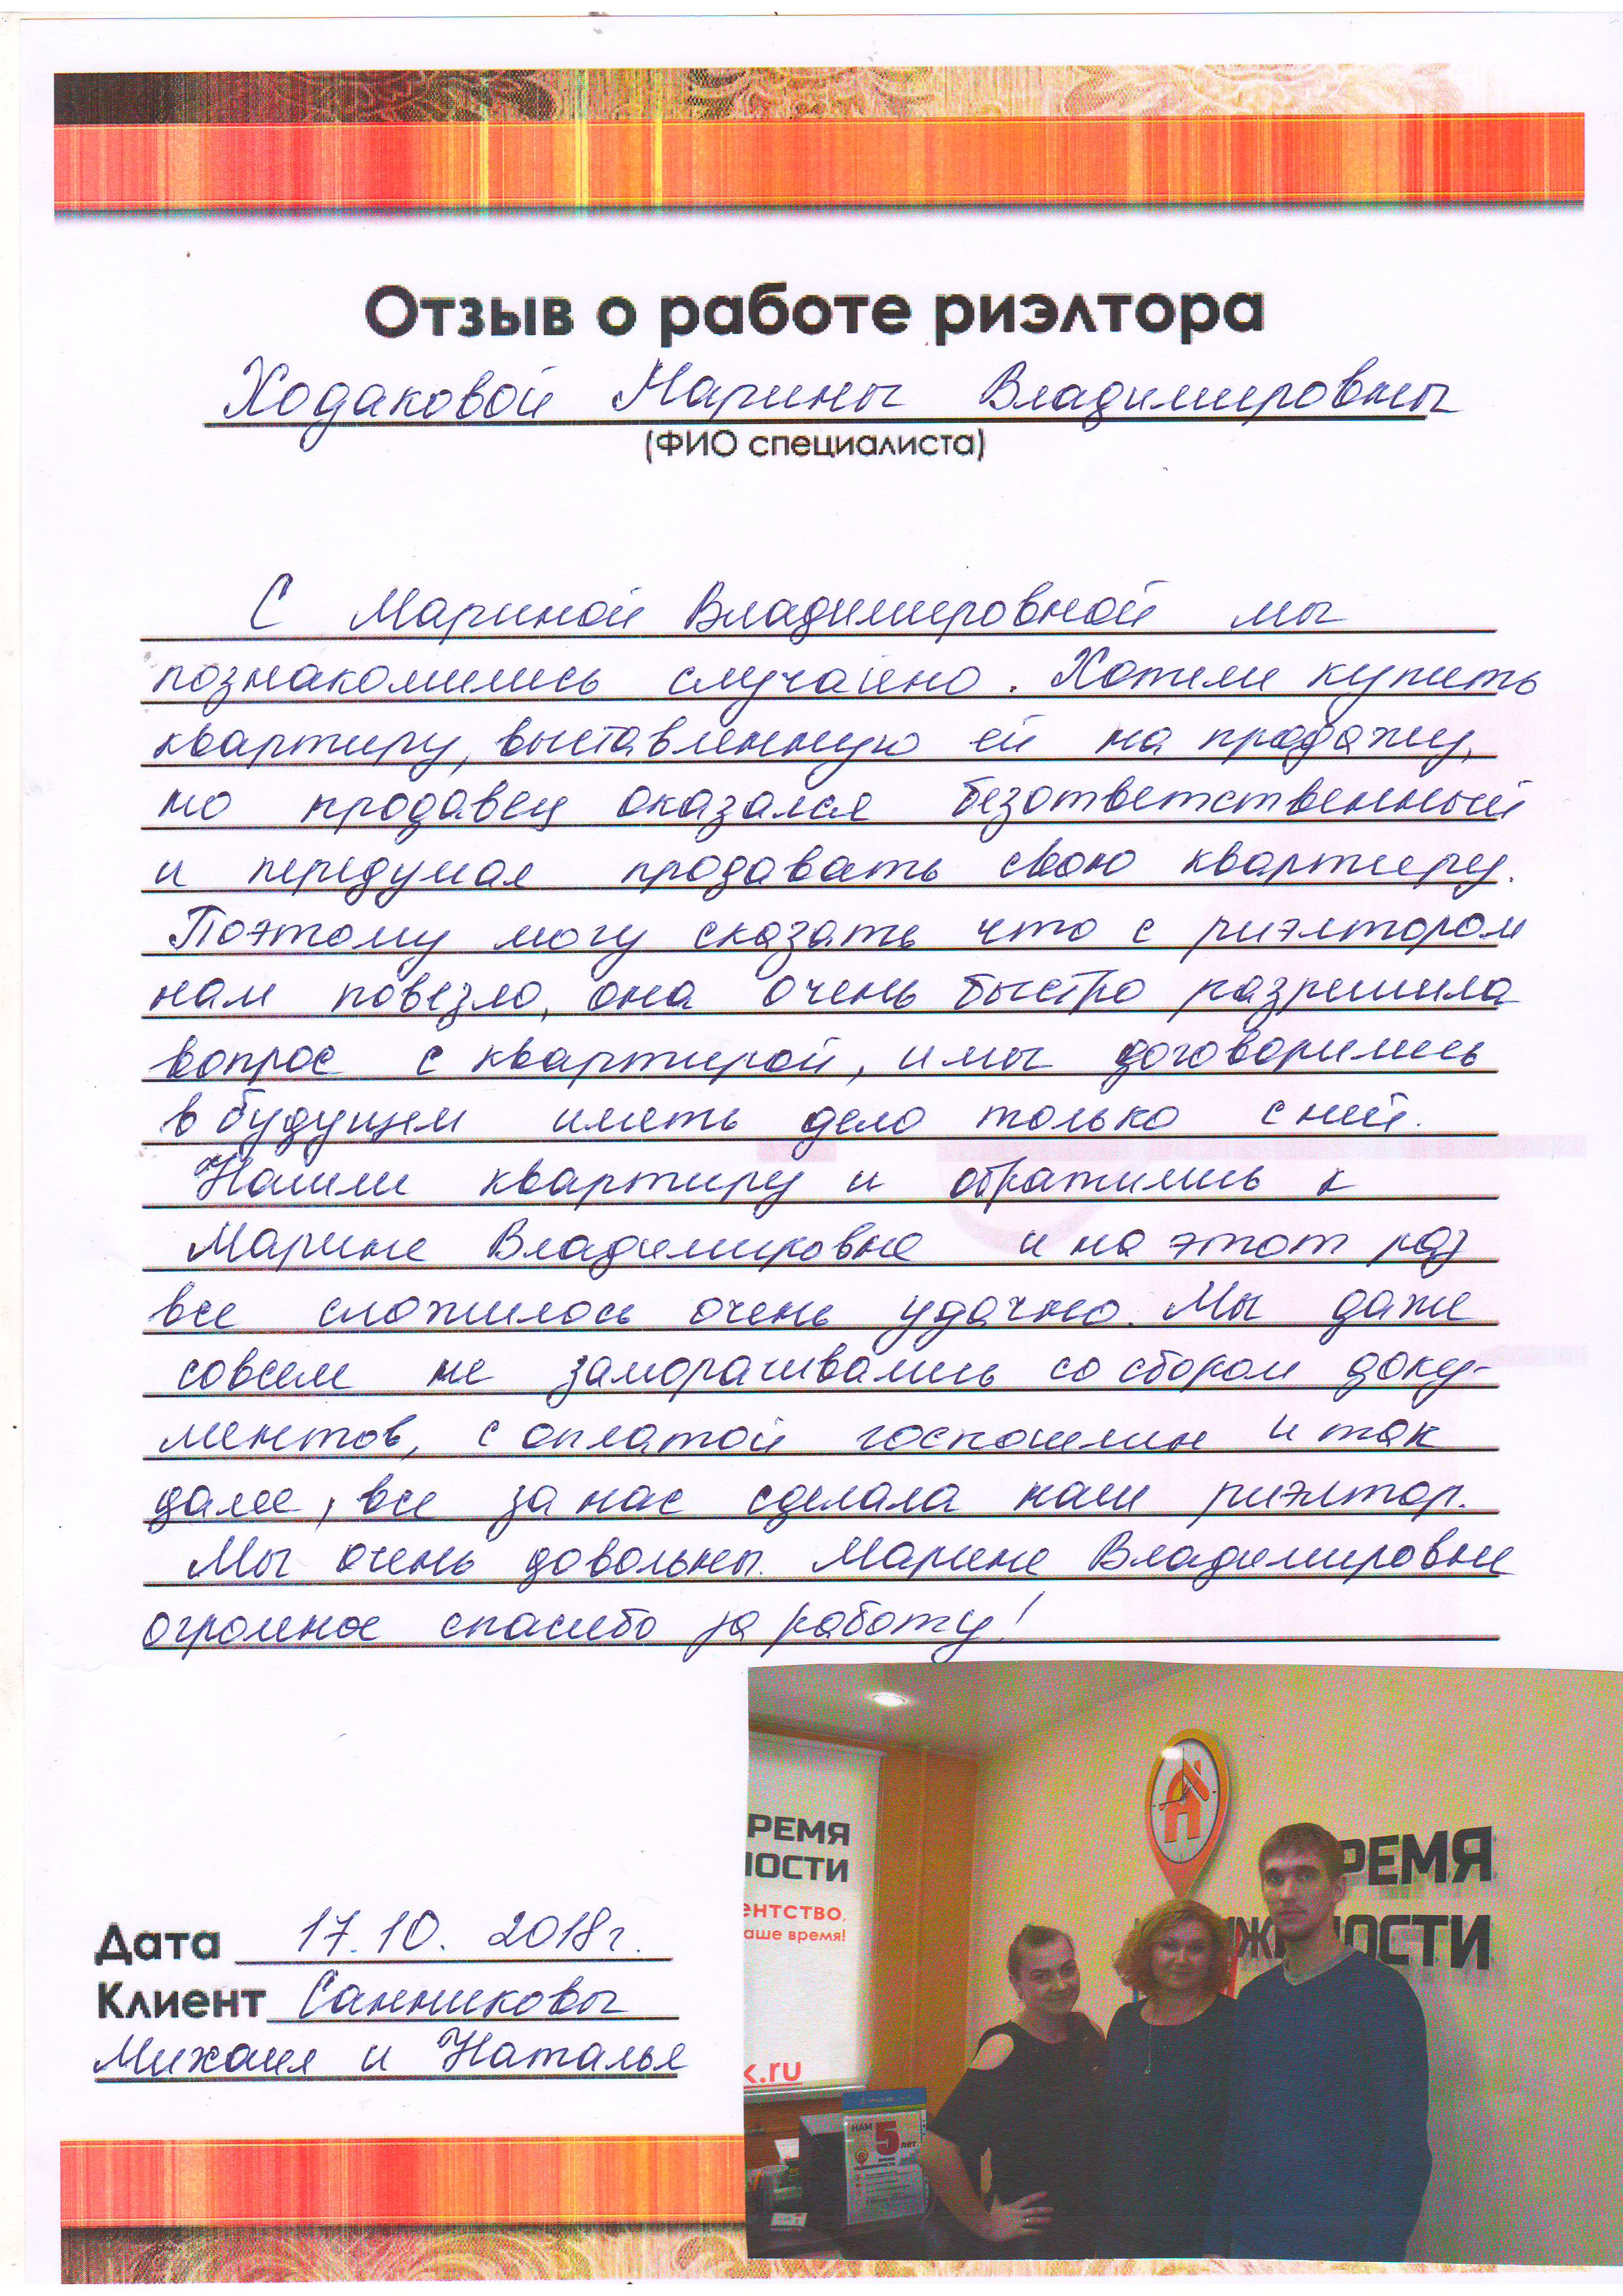 Отзыв о работе риэлтора
Ходаковой Марины Владимировны
(ФИО специалиста)
С Мариной Владимировной мы
познакомились случайно. Хотели купить
квартиру, выставленную ей на продажу,
но продавец оказался безответственный
и передумал продавать свою квартиру.
Поэтому могу сказать что с риэлтором
нам повезло, она очень быстро разрешила
вопрос с квартирой, и мы договорились
в будущем иметь дело только с ней.
Нашли квартиру и обратились к
Марине Владимировне и на этот раз
все сложилось очень удачно. Мы даже
совсем не заморачивались со сбором доку-
ментов, с оплатой госпошлин и так
далее, все за нас сделала наш риэлтор.
Мы очень довольны. Марине Владимировне
огромное спасибо за работу!
РЕМЯ
НОСТИ
ентство,
аше время!
k.ru
РЕМЯ
ИЖ ОСТИ
НАМ 5 ЛЕТ
ВРЕМЯ
НЕДВИЖИМОСТИ
Дата 17.10.2018г.
Клиент Санниковы
Михаил и Наталья